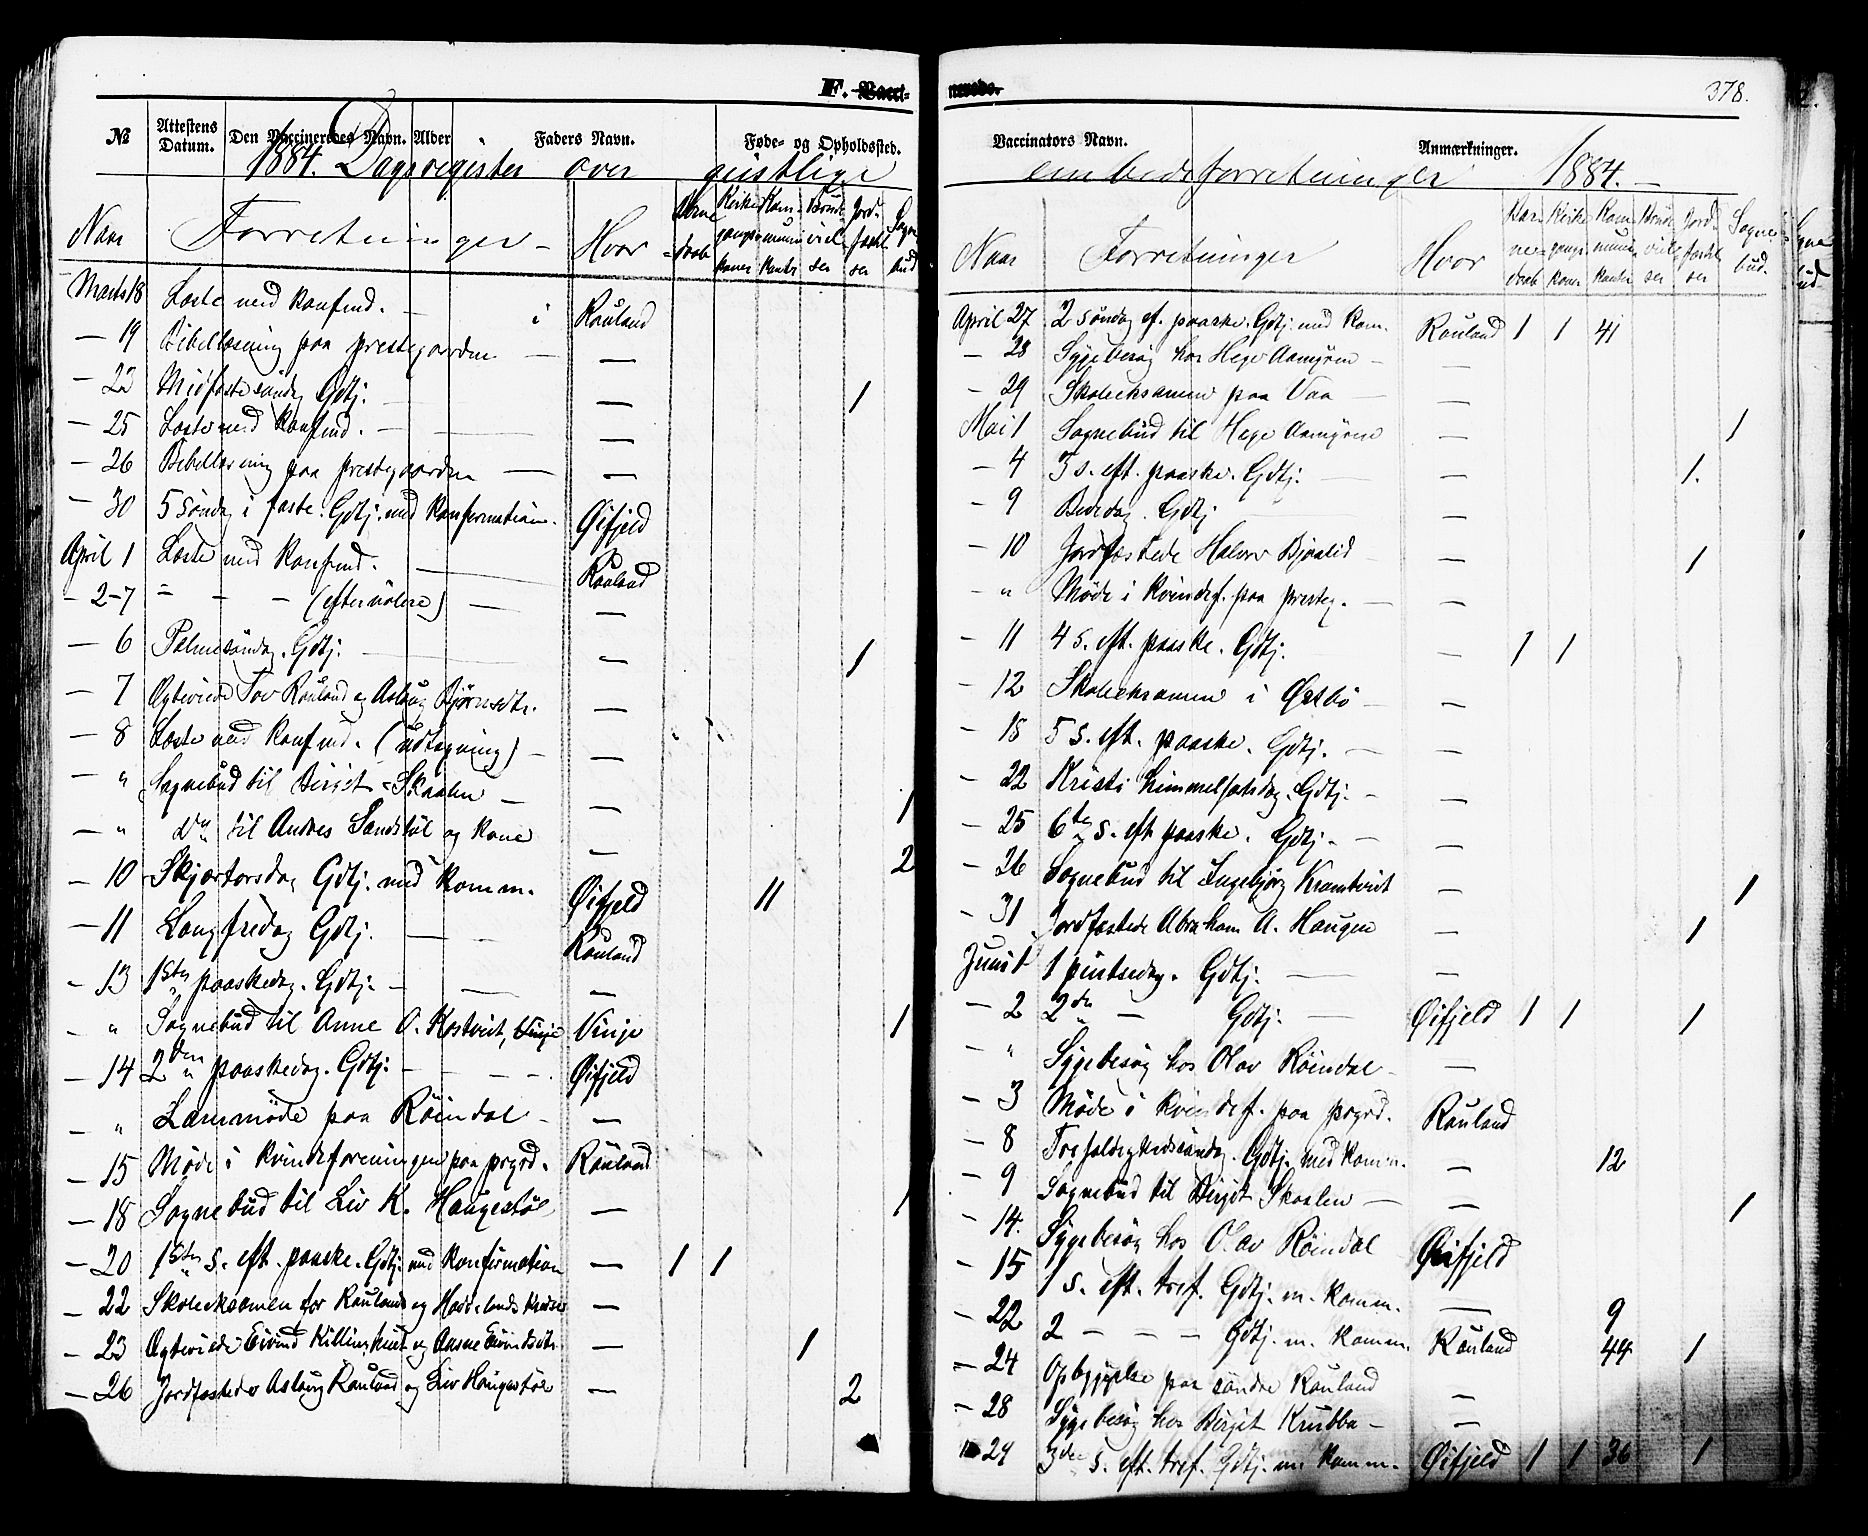 F. Vacci-
№ Attestens Datum. Den Vaccineredes Navn. Alder Faders Navn. Føde- og Opholdssted.
1884. Dagsregister over geistlige
Naar Forretninger Hvor Barnedaab Kirkegangskoner Kommunikanter Brudevielser Jordfæstelser Sognebud
Marts 18 Læste med konfmd. i Rauland
— 19 Bibellæsning paa prestegaarden — —
— 23 Midfastesöndag Gdtj. — — 1
— 25 Læste med konfmd. — —
— 26 Bibellæsning paa prestegaarden — —
— 30 5 söndag i faste. Gdtj. med konfirmation. Øifjeld
April 1 Læste med konfmd. — Rauland
— 2-7 — — — (efternölere) — —
— 6 Palmesöndag. Gdtj. — — 1
— 7 Ægteviede Tov Rauland og Aslaug Björnsdtr. —
— 8 Læste med konfmd. (Udtegning) — —
— " Sognebud til Birgit Skaalen — — 1
— " do til Andres Sandstöl og kone — 2
— 10 Skjærtorsdag Gdtj. med komm. Øifjeld 11
— 11 Langfredag Gdtj. — — Rauland
— 13 1ste paaskedag. Gdtj. — — —
— " Sognebud til Anne O. Kostveit, Vinje Vinje 1
— 14 2den paaskedag. Gdtj. — — — Øifjeld
— " Læremöde paa Röindal — —
— 15 Möde i kvindeforeningen paa prgrd. Rauland
— 18 Sognebud til Liv K. Haugestöl — 1
— 20 1ste s. eft. paaske. Gdtj. med konfirmation — 1 1
— 22 Skoleeksamen for Raulands og kredser —
— 23 Ægteviede Eivind og Aasne Eivindsdtr. — 1
— 26 Jordfæstede Aslaug Rauland og Liv Haugestöl — 2
nerede.
378.
Vaccinators Navn. Anmærkninger.
embedsforretninger 1884. —
Naar Forretninger Hvor Barnedaab Kirkegangskoner Kommunikanter Brudevielser Jordfæstelser Sognebud.
April 27 2 söndag ef. paaske. Gdtj. med kom. Rauland 1 1 41
— 28 Sygebesög hos Hege Aamyrene — —
— 29 Skoleeksamen paa Vaa — —
Mai 1 Sognebud til Hege Aamyrene — 1
— 4 3 s. eft. paaske. Gdtj. — — 1.
— 9 Bededag. Gdtj — —
— 10 Jordfæstede Halvor Bjaalid — — 1
— " Möde i kvindef. paa presteg. — —
— 11 4 s. eft. paaske. Gdtj. — 1 1
— 12 Skoleeksamen i Østbö — —
— 18 5 s. eft. paaske. Gdtj. — —
— 22 Kristi himmelfartsdag. Gdtj. — —
— 25 6te s. eft paaske. Gdtj. — —
— 26 Sognebud til Ingebjörg Kramtveit — 1
— 31 Jordfæstede Abraham A. Haugen — 1
Juni 1 1 pintsedag. Gdtj. — —
— 2 2den — Gdtj. — Øifjeld 1 1 1
— " Sygebesög hos Olav Röindal — —
— 3 Möde i kvindef. paa prgrd. Rauland
— 8 Trefoldighedssöndag. Gdtj. med komm. — 12
— 9 Sognebud til Birgit Skaalen — — 1
— 14. Sygebesög hos Olav Röindal Øifjeld
— 15 1 s. eft. tref. Gdtj. m. komm. — 9
— 22 2 — — — Gdtj. m. komm. Rauland 44 1
— 24 Opbyggelse paa söndre Rauland —
— 28 Sygebesög hos Birgit Krubba — —
29 3die s. eft. tref. Gdtj. m komm. Øifjeld 1 1 36 1